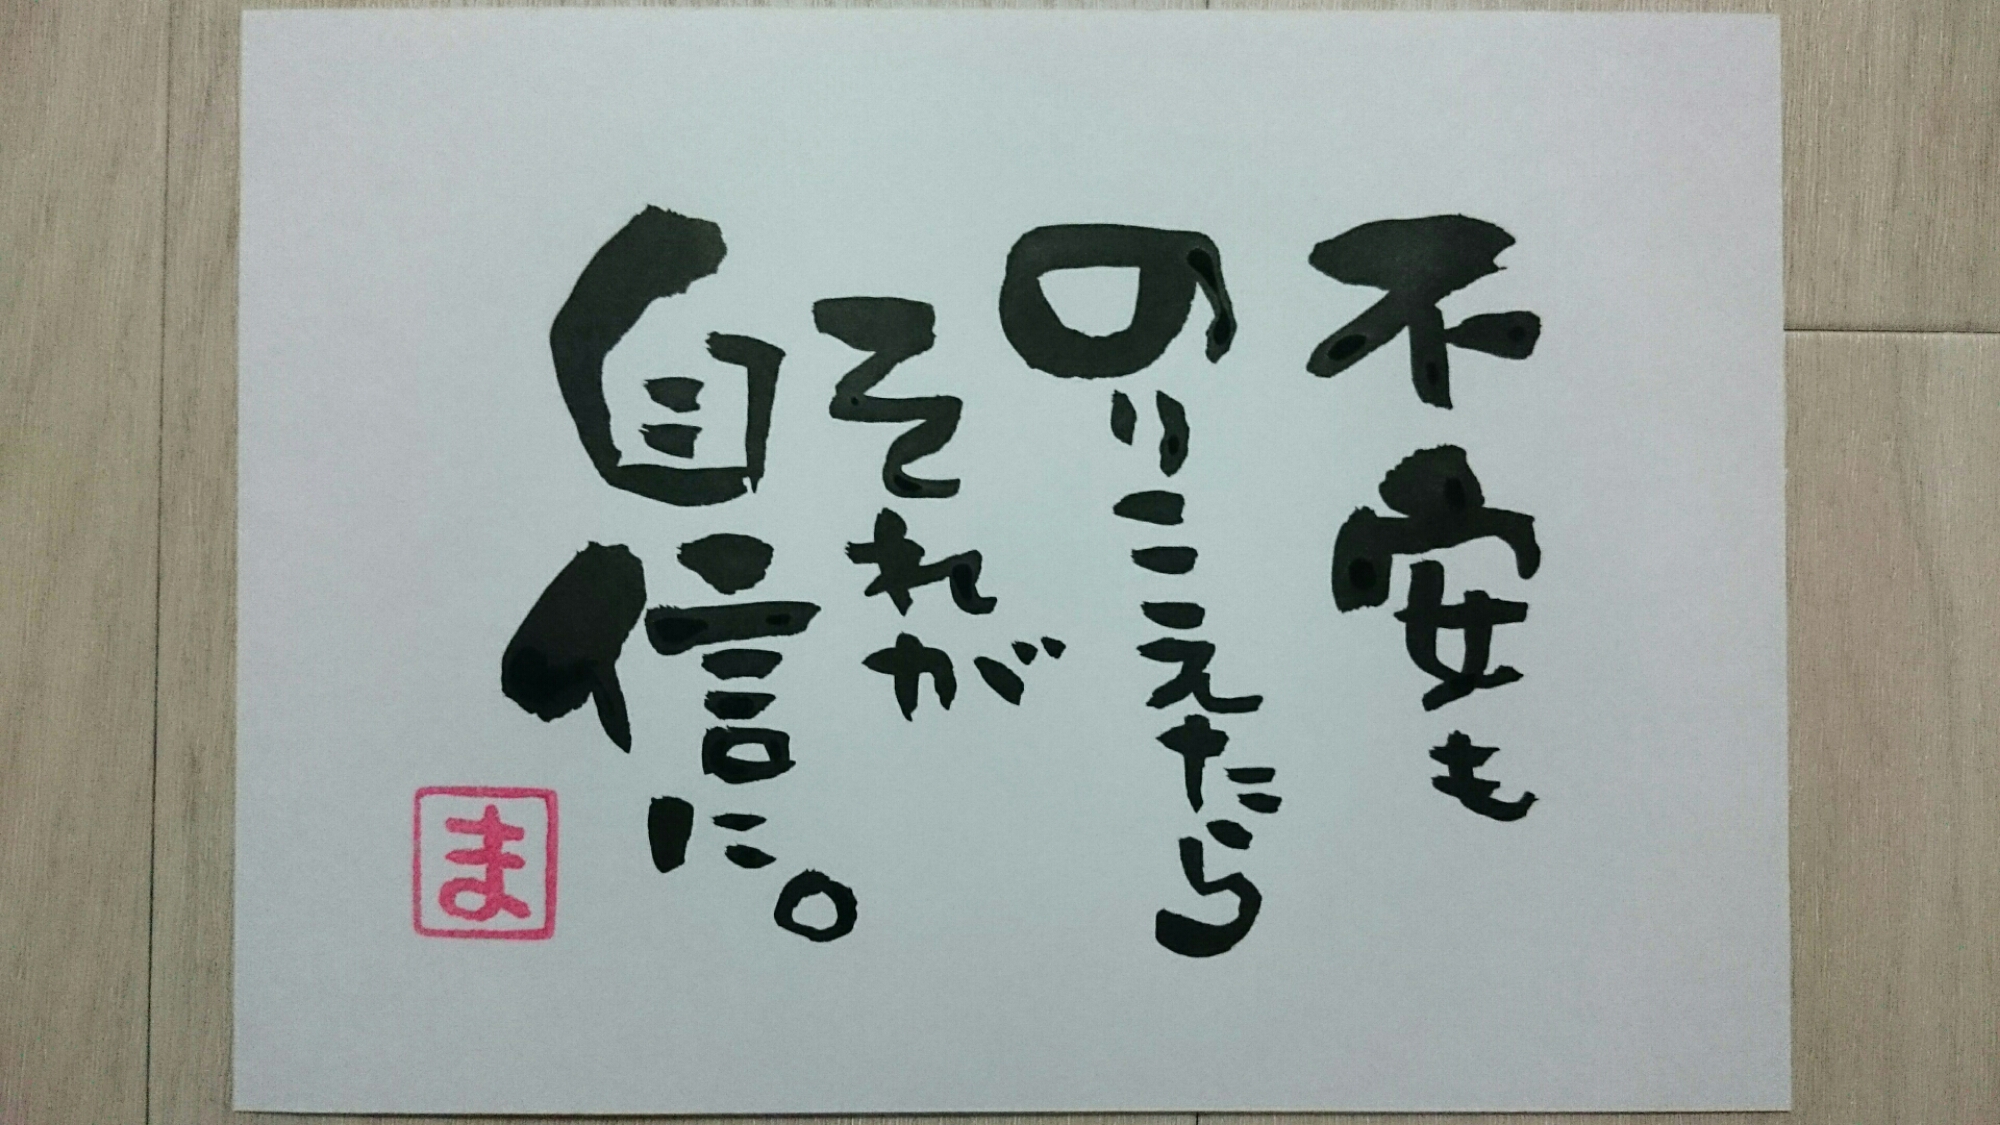 不安も
のりこえたら
それが
自信に。
ま